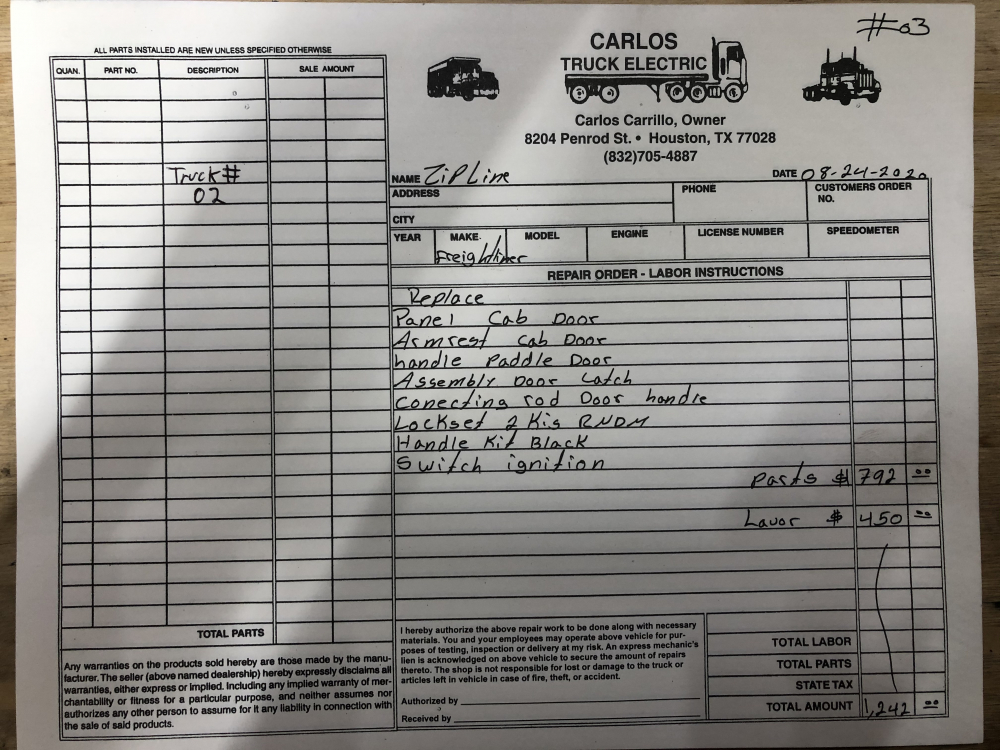 #03
ALL PARTS INSTALLED ARE NEW UNLESS SPECIFIED OTHERWISE
QUAN. PART NO. DESCRIPTION SALE AMOUNT
Truck#
02
TOTAL PARTS
Any warranties on the products sold hereby are those made by the manu-
facturer. The seller (above named dealership) hereby expressly disclaims all
warranties, either express or implied. Including any implied warranty of mer-
chantability or fitness for a particular purpose, and neither assumes nor
authorizes any other person to assume for it any liability in connection with
the sale of said products.
CARLOS
TRUCK ELECTRIC
Carlos Carrillo, Owner
8204 Penrod St. • Houston, TX 77028
(832)705-4887
NAME ZipLine DATE 08-24-2020
ADDRESS PHONE CUSTOMERS ORDER
NO.
CITY
YEAR MAKE MODEL ENGINE LICENSE NUMBER SPEEDOMETER
Freightliner
REPAIR ORDER - LABOR INSTRUCTIONS
Replace
Panel Cab Door
Armrest Cab Door
handle Paddle Door
Assembly Door Latch
Conecting rod Door handle
Lockset 2 Kis RNDM
Handle Kit Black
Switch ignition
Parts $ 792 00
Lavor $ 450 00
I hereby authorize the above repair work to be done along with necessary
materials. You and your employees may operate above vehicle for pur-
poses of testing, inspection or delivery at my risk. An express mechanic's
lien is acknowledged on above vehicle to secure the amount of repairs
thereto. The shop is not responsible for lost or damage to the truck or
articles left in vehicle in case of fire, theft, or accident.
Authorized by
Received by
TOTAL LABOR
TOTAL PARTS
STATE TAX
TOTAL AMOUNT 1,242 00